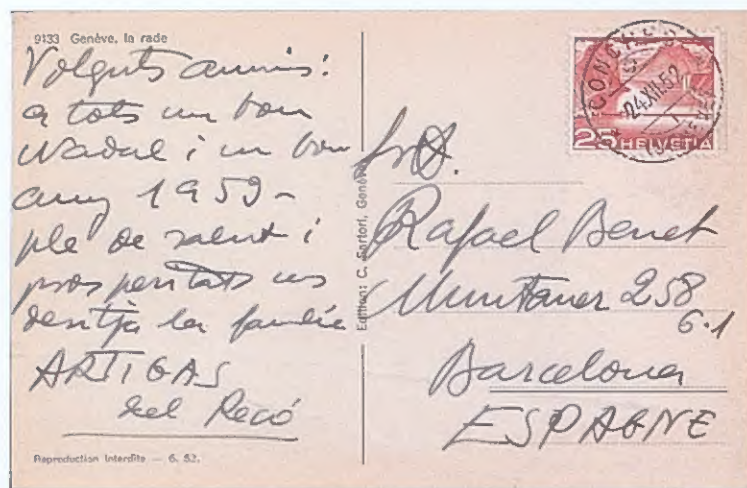 9133 Genève, la rade
Volguts amics:
a tots un bon
Nadal i un bon
any 1953-
ple de salut i
prosperitats us
desitja la família
ARTIGAS
del Recó
Reproduction interdite — 6. 52.
Edition: C. Sartori, Genève
24.XII.52
25 HELVETIA
Rafael Benet
Muntaner 258
6.1
Barcelona
ESPAGNE